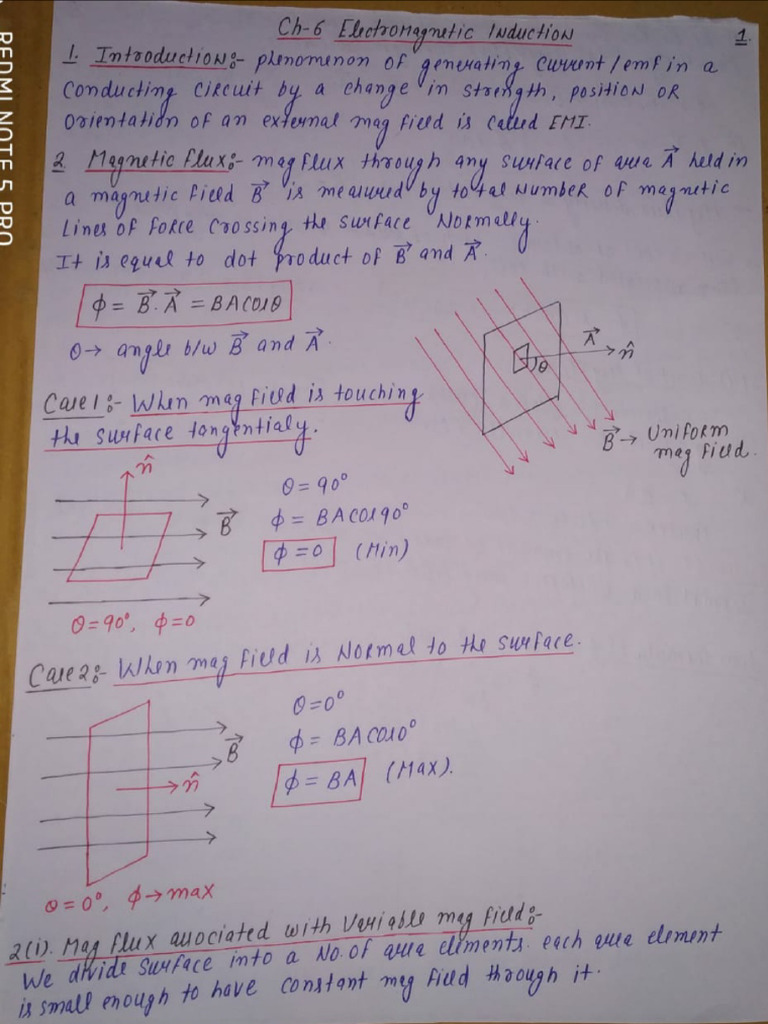 Ch-6 Electromagnetic Induction
1.
1. Introduction:- phenomenon of generating current/emf in a
conducting circuit by a change in strength, position OR
orientation of an external mag field is called EMI.
2 Magnetic flux:- mag flux through any surface of area A⃗ held in
a magnetic field B⃗ is measured by total number of magnetic
Lines of force crossing the surface Normally.
It is equal to dot product of B⃗ and A⃗.
ϕ = B⃗.A⃗ = BACosθ
θ → angle b/w B⃗ and A⃗.
A⃗
n̂
θ
B⃗ → Uniform
mag field.
Case 1:- When mag field is touching
the surface tangentialy.
n̂
B⃗
θ = 90°
ϕ = BACos90°
ϕ = 0 (Min)
θ = 90°, ϕ = 0
Case 2:- When mag field is Normal to the surface.
B⃗
n̂
θ = 0°
ϕ = BACos0°
ϕ = BA (Max).
θ = 0°, ϕ → max
2(i). Mag flux associated with Variable mag field:-
We divide surface into a No. of area elements. each area element
is small enough to have constant mag field through it.
REDMI NOTE 5 PRO